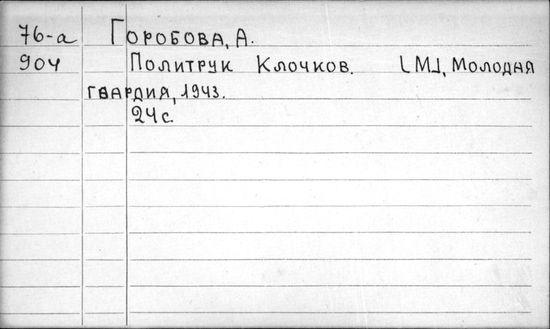 76-а Горобова, А.
904 Политрук Клочков. [М], Молодая
гвардия, 1943.
24с.